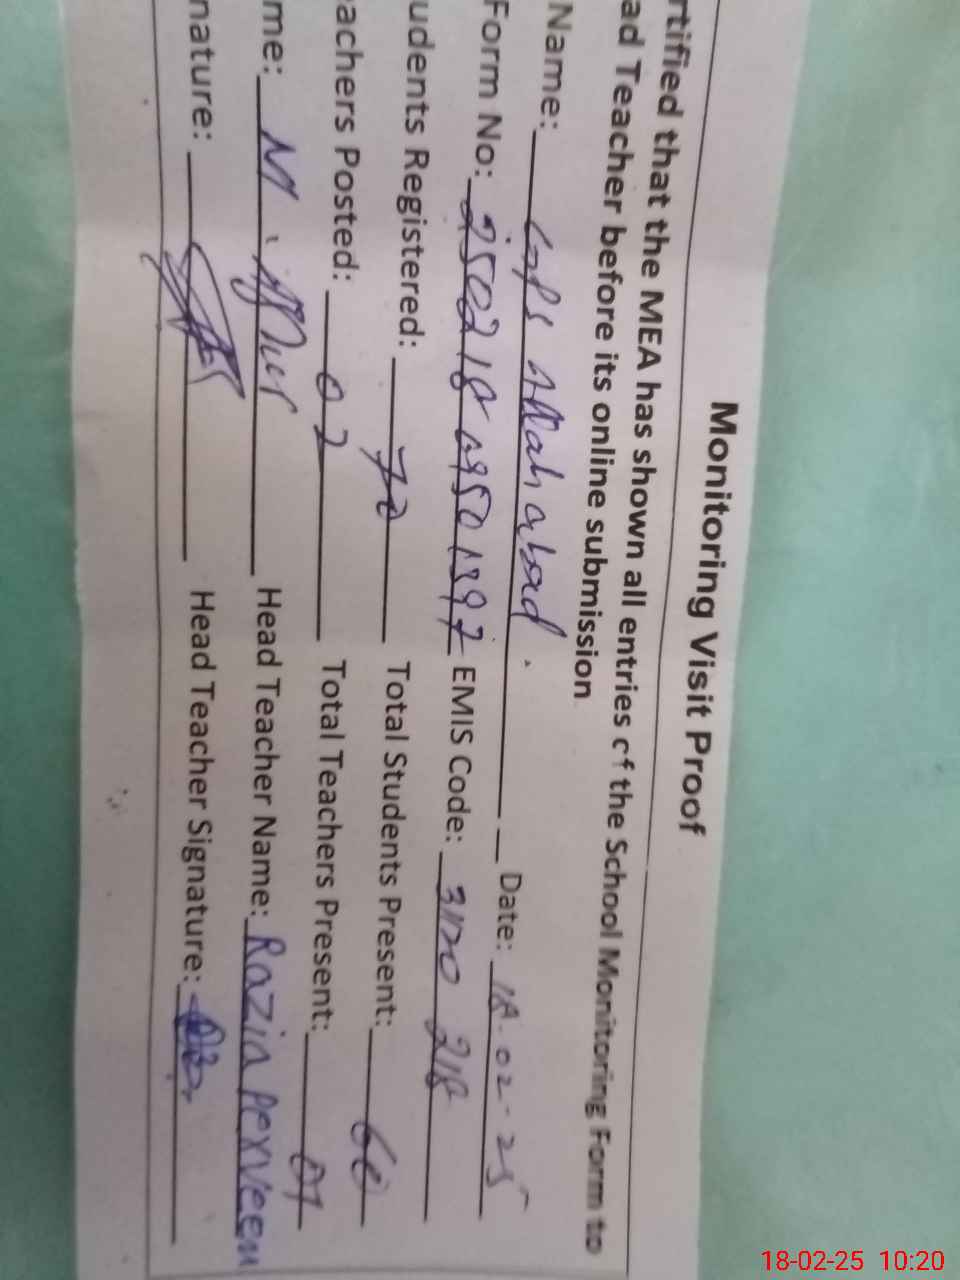 Monitoring Visit Proof
rtified that the MEA has shown all entries of the School Monitoring Form to
ad Teacher before its online submission
Name: Allahabad. Date: 18-02-25
Form No: EMIS Code: 218
udents Registered: 70 Total Students Present: 60
achers Posted: 02 Total Teachers Present: 01
me: M. Head Teacher Name: Razia Perveen
nature: Head Teacher Signature:
18-02-25 10:20